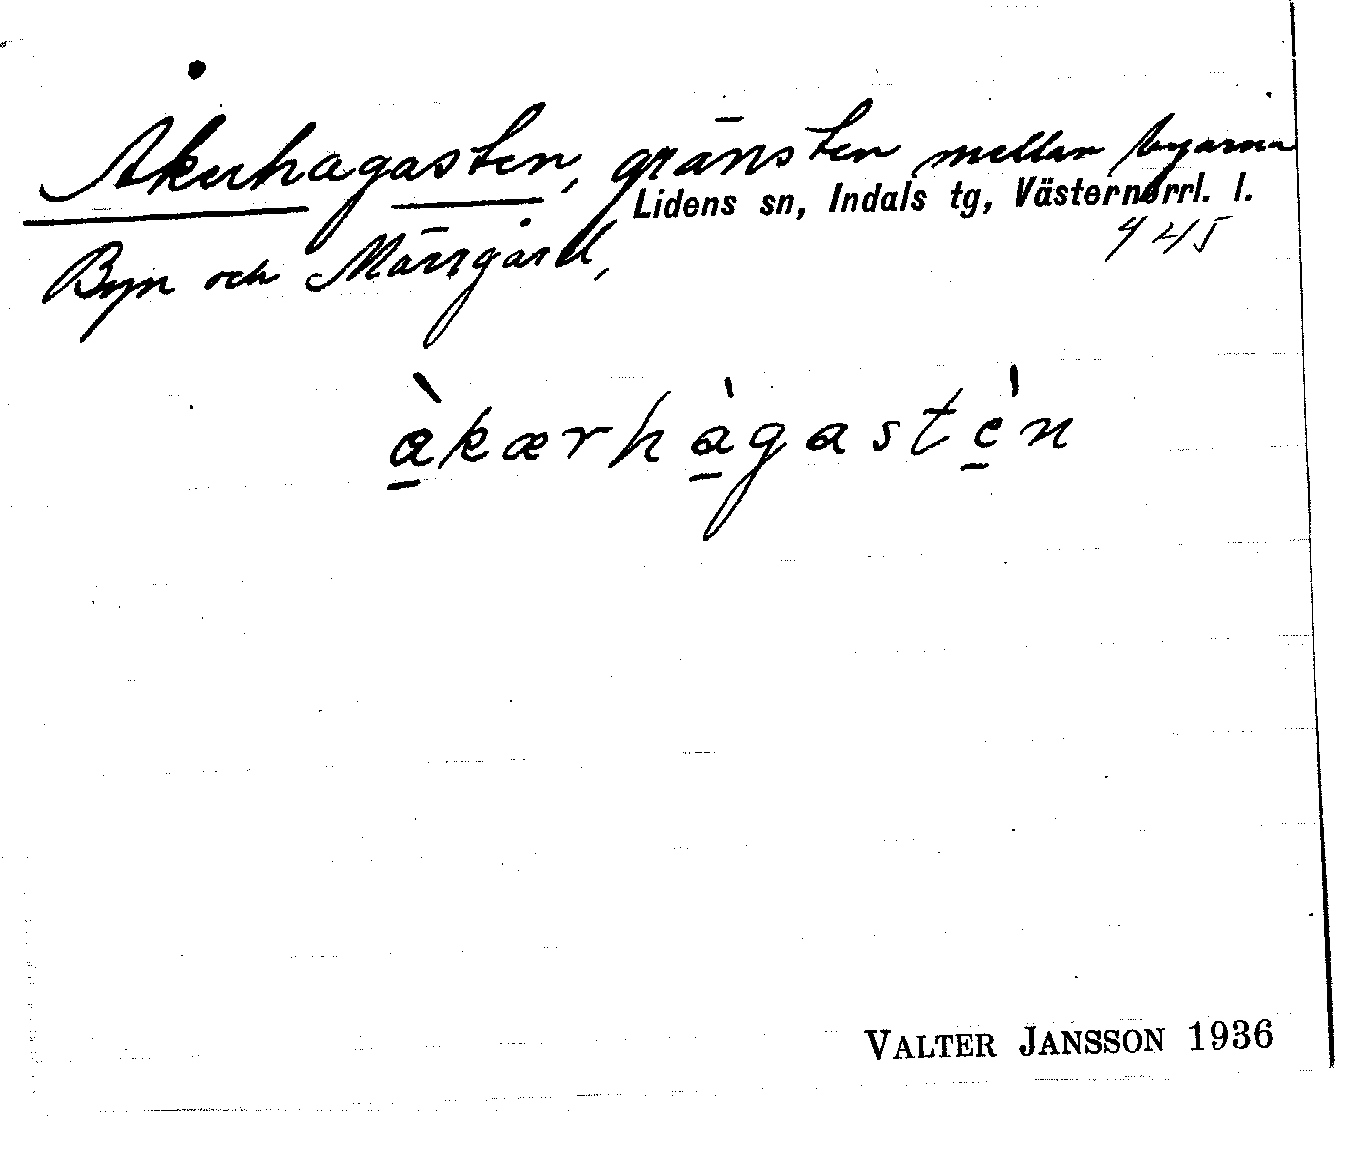 Åkerhagasten, gränsten mellan byarna
Lidens sn, Indals tg, Västernorrl. l.
Byn och Märrgård,
445
àkærhàgastèn
VALTER JANSSON 1936